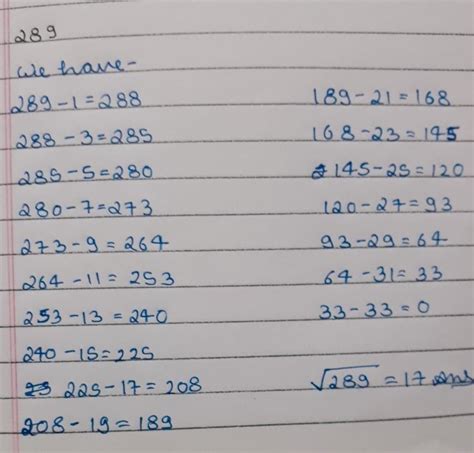 289
We have-
289-1=288
288-3=285
285-5=280
280-7=273
273-9=264
264-11=253
253-13=240
240-15=225
225-17=208
208-19=189
189-21=168
168-23=145
145-25=120
120-27=93
93-29=64
64-31=33
33-33=0
√289=17 ans